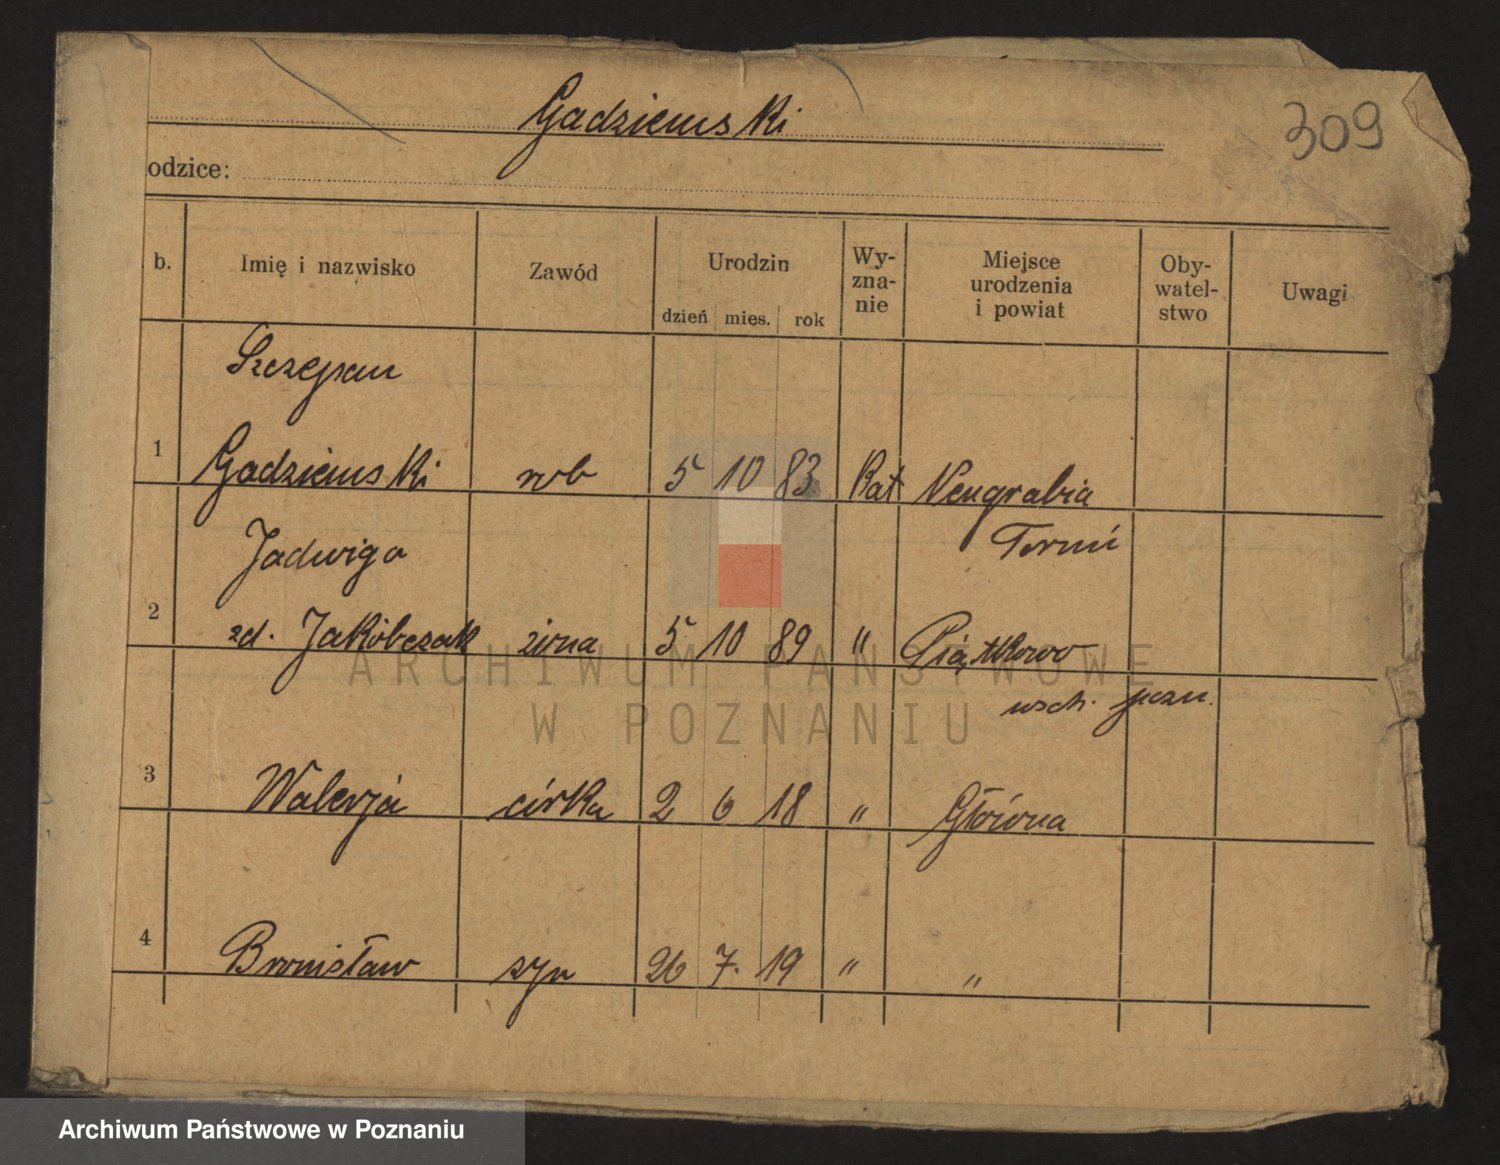 Gadziemski
309
odzice:
b. Imię i nazwisko Zawód Urodzin Wy-zna-nie Miejsce urodzenia i powiat Oby-watel-stwo Uwagi
dzień mies. rok
Szczepan
1 Gadziemski rob 5 10 83 Kat Neugrabia
Toruń
Jadwiga
2 zd. Jakóbczak żona 5 10 89 " Piątkowo
wsch. pozn.
3 Walerja córka 2 6 18 " Główna
4 Bronisław syn 26 7. 19 " "
ARCHIWUM PAŃSTWOWE
W POZNANIU
Archiwum Państwowe w Poznaniu